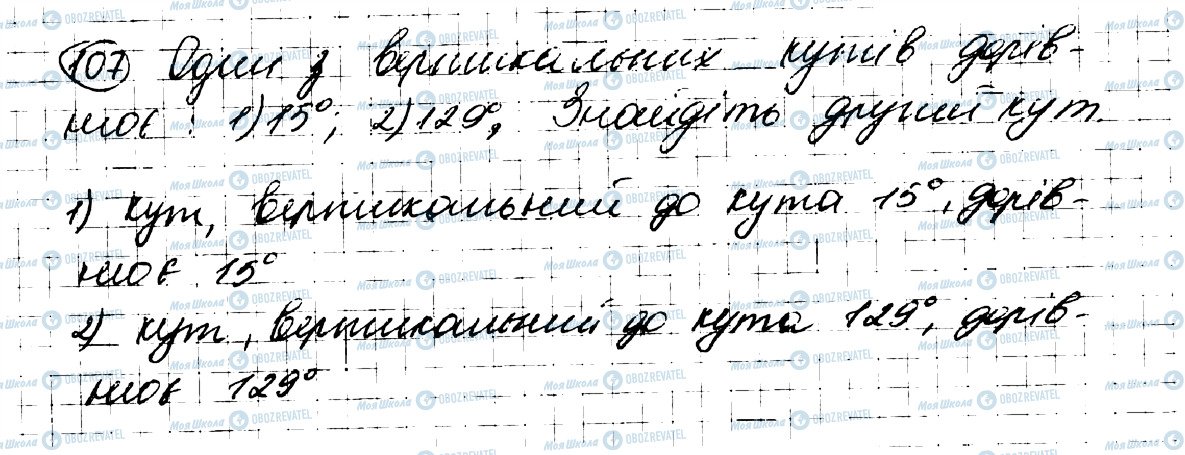 107 Один з вертикальних кутів дорів-
нює: 1) 15°; 2) 129°, Знайдіть другий кут.
1) кут, вертикальний до кута 15°, дорів-
нює 15°
2) кут, вертикальний до кута 129°, дорів-
нює 129°